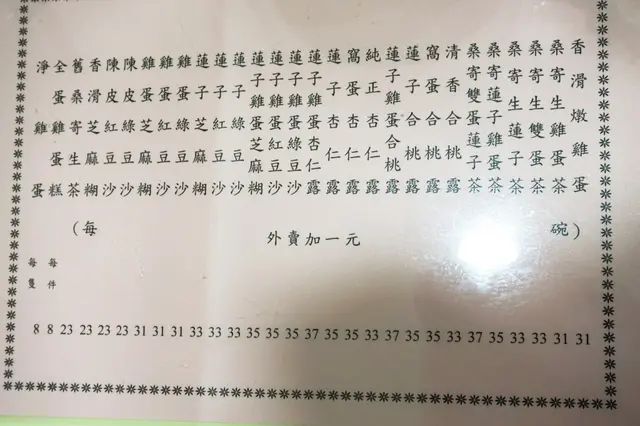 香滑燉雞蛋
桑寄生雞蛋茶
桑寄生雙蛋茶
桑寄生蓮子茶
桑寄蓮子雞蛋茶
桑寄雙蛋蓮子茶
清香合桃露
窩蛋合桃露
蓮子合桃露
蓮子雞蛋合桃露
純正杏仁露
窩蛋杏仁露
蓮子杏仁露
蓮子雞蛋杏仁露
蓮子雞蛋綠豆沙
蓮子雞蛋紅豆沙
蓮子雞蛋芝麻糊
蓮子綠豆沙
蓮子紅豆沙
蓮子芝麻糊
雞蛋綠豆沙
雞蛋紅豆沙
雞蛋芝麻糊
陳皮紅豆沙
陳皮紅豆沙
香滑芝麻糊
舊桑寄生茶
全蛋雞蛋糕
淨雞蛋
(每 碗)
外賣加一元
每件
每隻
8 8 23 23 23 23 31 31 31 33 33 33 35 35 35 37 35 35 33 37 35 35 33 37 35 33 33 31 31